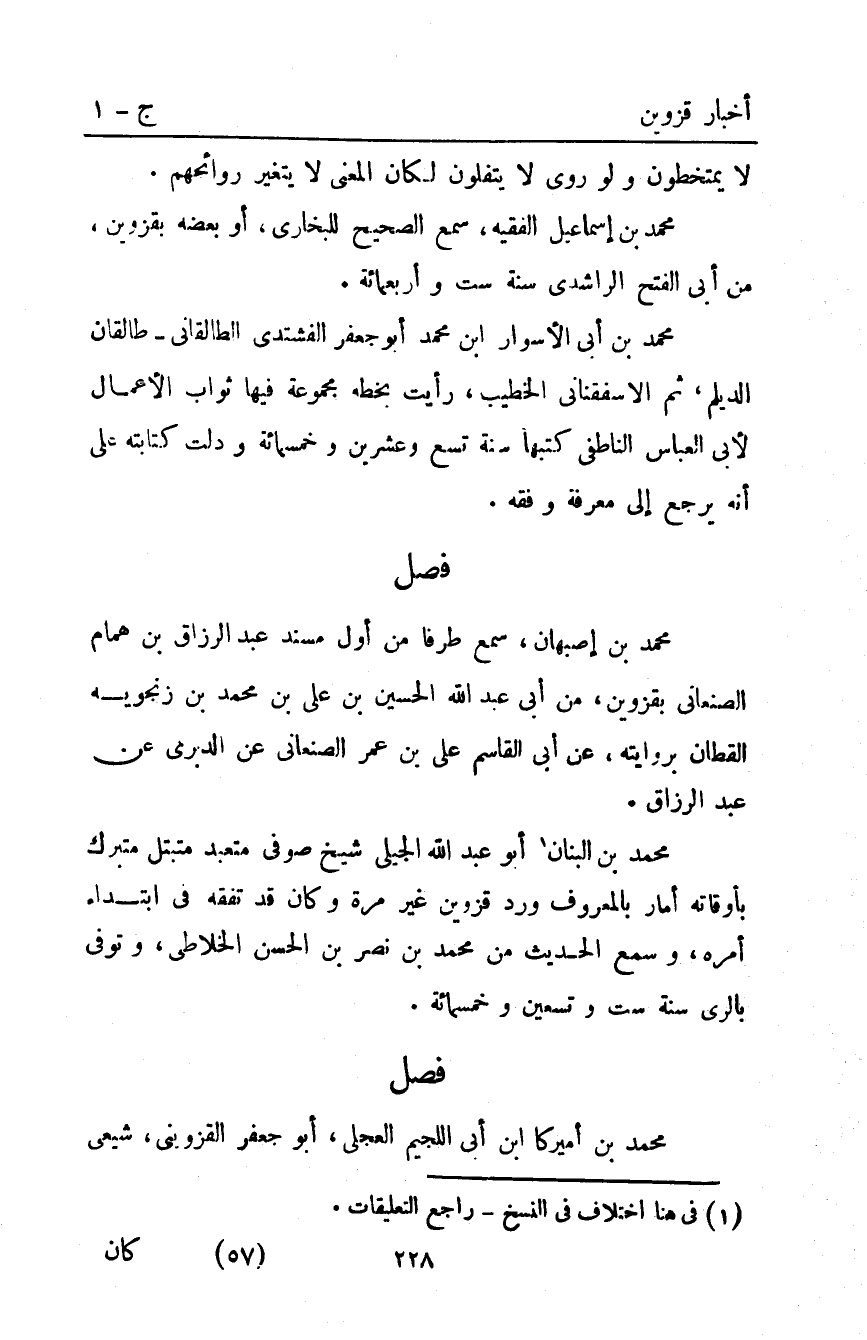 أخبار قزوين ج - ١
لا يمتخطون و لو روى لا يتفلون لـكان المعنى لا يتغير روائحهم .
محمد بن إسماعيل الفقيه، سمع الصحيح للبخارى، أو بعضه بقزوين،
من أبى الفتح الراشدى سنة ست و أربعمائة .
محمد بن أبى الأسوار ابن محمد أبو جعفر الفشتدى الطالقانى ـ طالقان
الديلم، ثم الاسفقنانى الخطيب، رأيت بخطه مجموعة فيها ثواب الأعمـال
لأبى العباس الناطفى كتبها سنة تسع وعشرين و خمسمائة و دلت كتابته على
أنه يرجع إلى معرفة و فقه .
فصل
محمد بن إصبهان، سمع طرفا من أول مسند عبد الرزاق بن همام
الصنعانى بقزوين، من أبى عبد الله الحسين بن على بن محمد بن زنجويـــه
القطان بروايته، عن أبى القاسم على بن عمر الصنعانى عن الدبرى عن
عبد الرزاق .
محمد بن البنان١ أبو عبد الله الجيلى شيخ صوفى متعبد متبتل متبرك
بأوقاته أمار بالمعروف ورد قزوين غير مرة و كان قد تفقه فى ابتـــداء
أمره، و سمع الحـديث من محمد بن نصر بن الحسن الخلاطى، و توفى
بالرى سنة ست و تسعين و خمسمائة .
فصل
محمد بن أميركا ابن أبى اللجيم العجلى، أبو جعفر القزوينى، شيعى
(١) فى هنا اختلاف فى النسخ ـ راجع التعليقات .
٢٢٨ (٥٧) كان